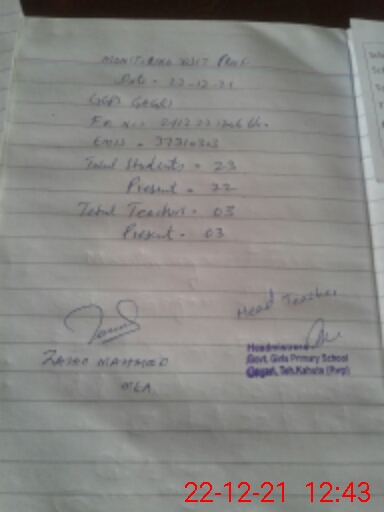 MONITORING VISIT Prof
Date = 22-12-21
GGPS Gagari
EMIS = 37310303
Total Students = 23
Present = 22
Total Teachers = 03
Present = 03
Head Teacher
ZAHID MAHMOOD
MEA
Headmistress
Govt. Girls Primary School
Gagari, Teh.Kahuta (Rwp)
22-12-21 12:43